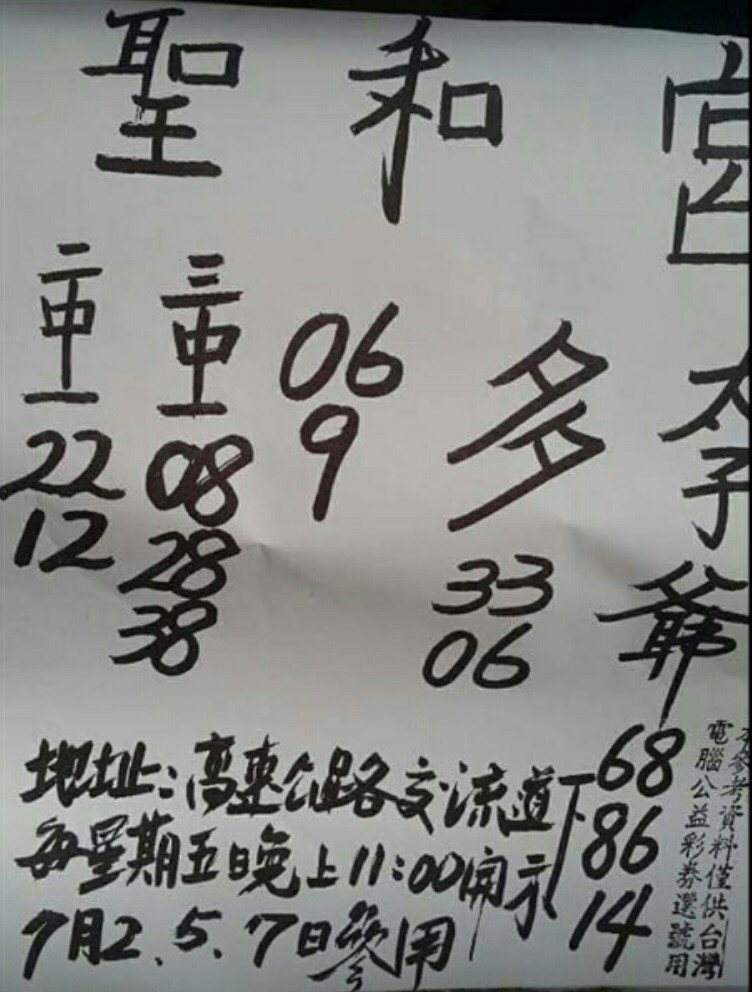 聖和宮
二中一
22
12
三中一
08
28
38
06
9
多
33
06
太子爺
68
86
14
地址:高速公路交流道下
每星期五晚上11:00開示
7月2.5.7日參用
本參考資料僅供台灣
電腦公益彩券選號用